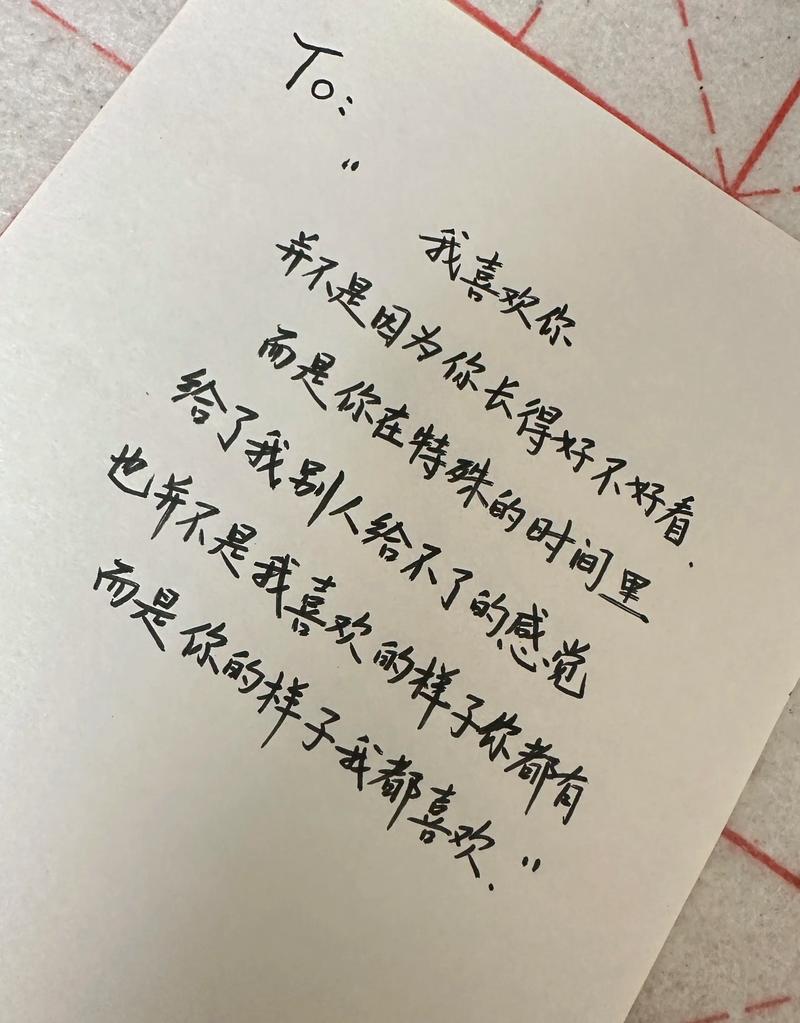 To:
“
我喜欢你
并不是因为你长得好不好看.
而是你在特殊的时间里
给了我别人给不了的感觉
也并不是我喜欢的样子你都有
而是你的样子我都喜欢.”